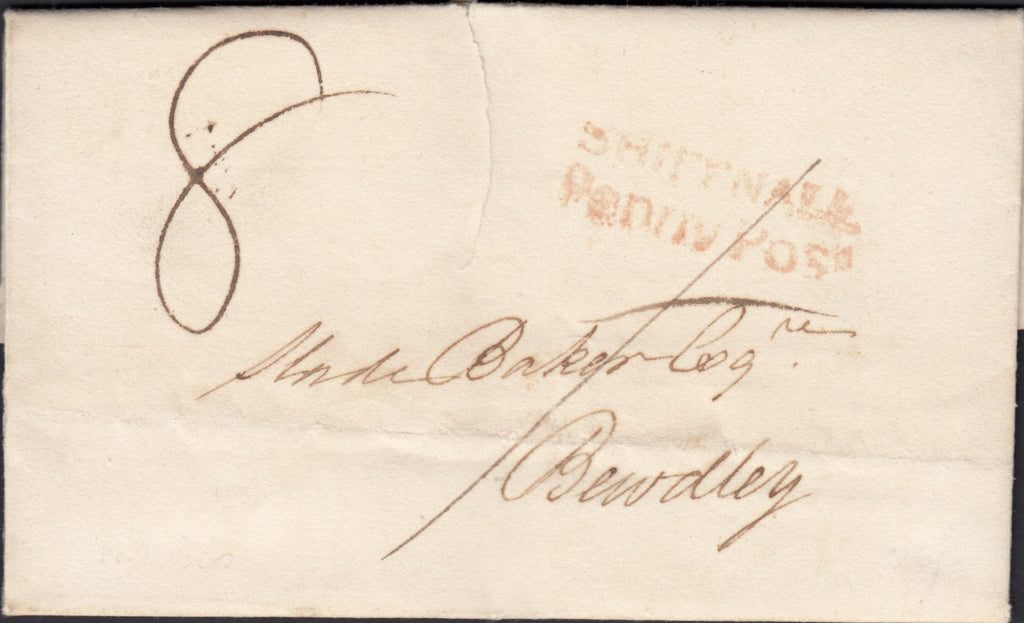 8
SHIFFNALL
Penny Post
Slade Baker Esqre.
Bewdley